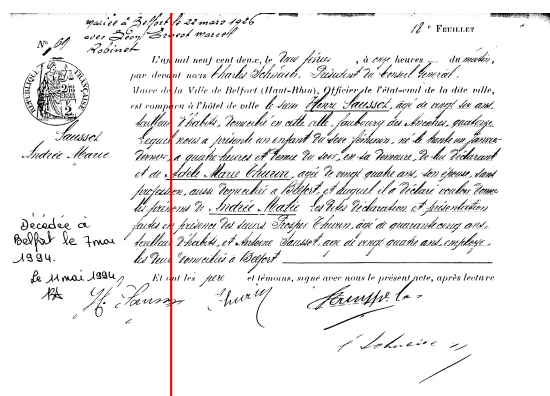 mariée à Belfort le 22 mars 1926
avec Léon Ernest Marcel
Robinet
18e FEUILLET
No 69
RÉPUBLIQUE FRANÇAISE
Sausset
Andrée Marie
L'an mil neuf cent deux, le deux février, à onze heures du matin,
par devant nous Charles Schneider, Président du Conseil Général,
Maire de la Ville de Belfort (Haut-Rhin), Officier de l'état-civil de la dite ville,
est comparu à l'hôtel de ville le sieur Henri Sausset, âgé de vingt six ans,
tailleur d'habits, domicilié en cette ville, faubourg des Ancêtres, quatorze
lequel nous a présenté un enfant du sexe féminin, né le trente un janvier
dernier, à quatre heures et demie du soir, en sa demeure, de lui déclarant
et de Adèle Marie Thurin, âgée de vingt quatre ans, son épouse, sans
profession, aussi domiciliée à Belfort, et auquel il a déclaré vouloir donner
les prénoms de Andrée Marie. Les dites déclaration et présentation
faites en présence des sieurs Prosper Thurin, âgé de quarante cinq ans,
tailleur d'habits, et Antoine Sausset, âgé de vingt quatre ans, employé,
les deux domiciliés à Belfort
Et ont les père et témoins, signé avec nous le présent acte, après lecture
Décédée à
Belfort le 7 mai
1994.
Le 11 mai 1994
H. Sausset Thurin